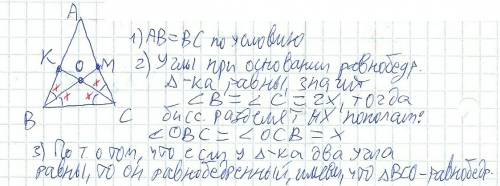 A
K
O
M
x
x
x
x
B
C
1) AB=BC по условию
2) Углы при основании равнобедр.
Δ-ка равны, значит
∠B=∠C=2x, тогда
бисс. разделят их пополам:
∠OBC=∠OCB=x
3) По том, что если у Δ-ка два угла
равны, то он равнобедренный, имеем, что ΔBCO-равнобедр.